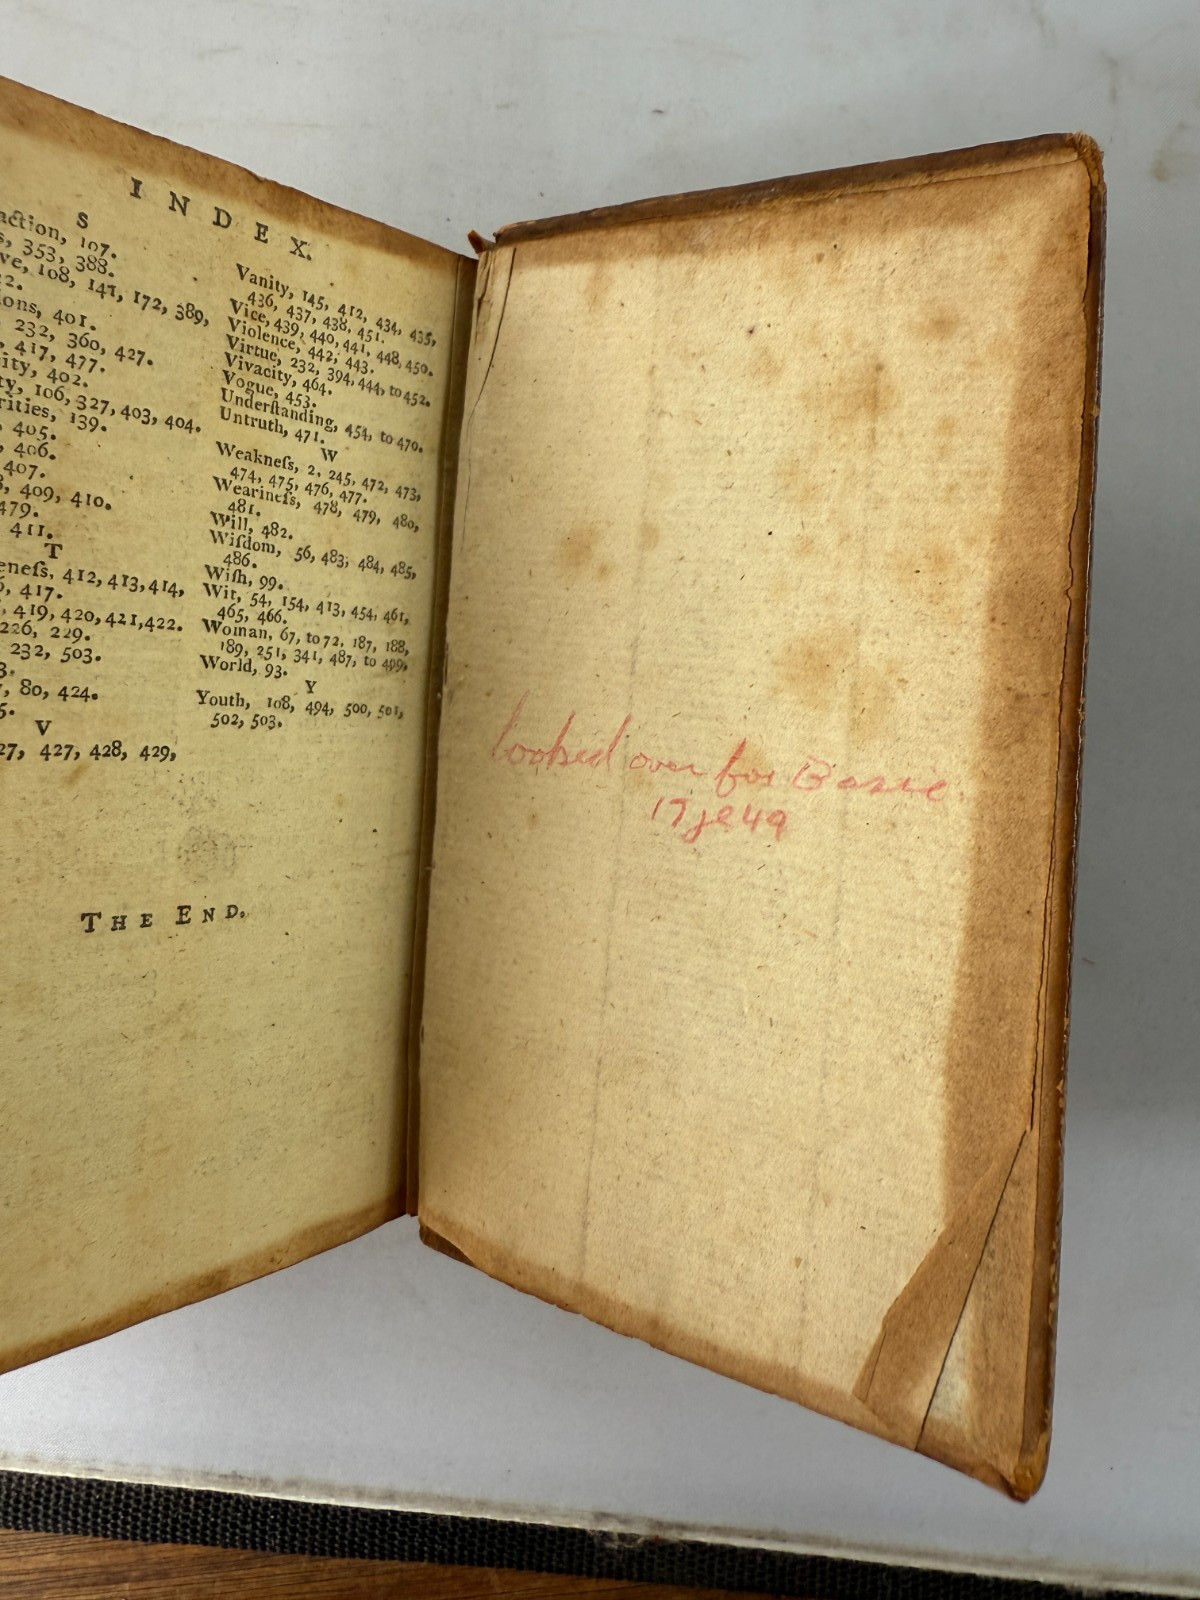 INDEX.
S
action, 107.
s, 353, 388.
ve, 108, 141, 172, 389,
ions, 401.
232, 360, 427.
417, 477.
ity, 402.
ty, 106, 327, 403, 404.
rities, 139.
405.
406.
407.
409, 410.
479.
411.
T
eneſs, 412, 413, 414,
417.
419, 420, 421, 422.
226, 229.
232, 503.
80, 424.
V
27, 427, 428, 429,
Vanity, 145, 412, 434, 435,
436, 437, 438, 451.
Vice, 439, 440, 441, 448, 450.
Violence, 442, 443.
Virtue, 232, 394, 444, to 452.
Vivacity, 464.
Vogue, 453.
Underſtanding, 454, to 470.
Untruth, 471.
W
Weakneſs, 2, 245, 472, 473,
474, 475, 476, 477.
Wearineſs, 478, 479, 480,
481.
Will, 482.
Wiſdom, 56, 483, 484, 485,
486.
Wiſh, 99.
Wit, 54, 154, 413, 454, 461,
465, 466.
Woman, 67, to 72, 187, 188,
189, 251, 341, 487, to 499,
World, 93.
Y
Youth, 108, 494, 500, 501,
502, 503.
THE END.
looked over for Basic
17 je 49